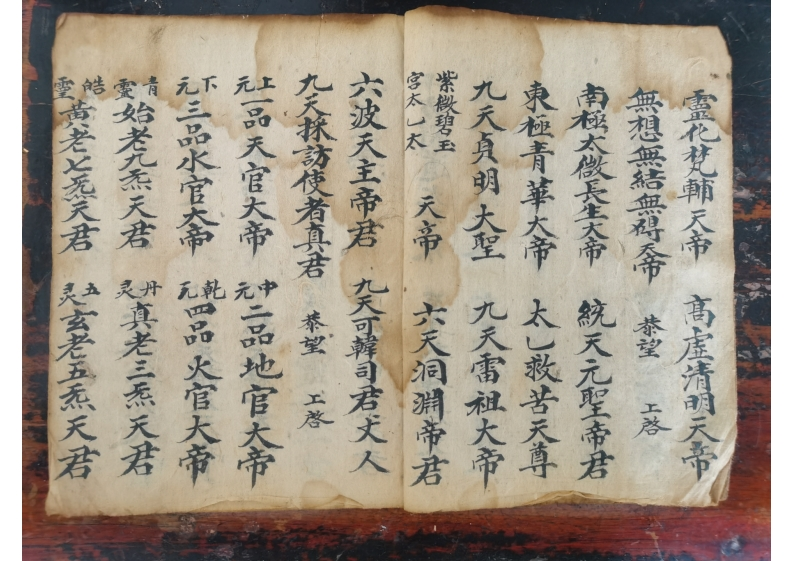 靈化梵輔天帝 高虚清明天帝
無想無結無碍天帝 恭望 上啓
南極太微長生大帝 統天元聖帝君
東極青華大帝 太乚救苦天尊
九天貞明大聖 九天雷祖大帝
紫微碧玉宮太乚太天帝 六天洞渊帝君
六波天主帝君 九天可韓司君丈人
九天採訪使者真君 恭望 上啓
上元一品天官大帝 中元二品地官大帝
下元三品水官大帝 乾元四品火官大帝
青靈始老九炁天君 丹灵真老三炁天君
皓靈黃老七炁天君 五灵玄老五炁天君